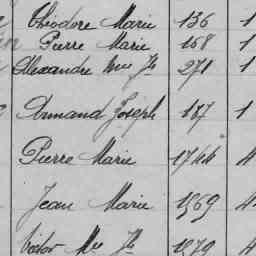 Théodore Marie 136 1
Pierre Marie 158 1
Alexandre Mie Jh 271 1
Armand Joseph 187 1
Pierre Marie 1744 4
Jean Marie 1969 4
Victor Mie Jh 1979 4